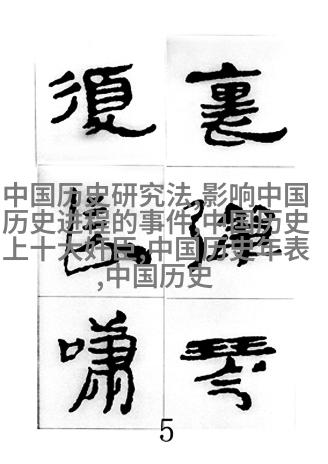 裏彈琴
復長嘯
中国历史研究法,影响中国
历史进程的事件,中国历史
上十大奸臣,中国历史年表
,中国历史
5